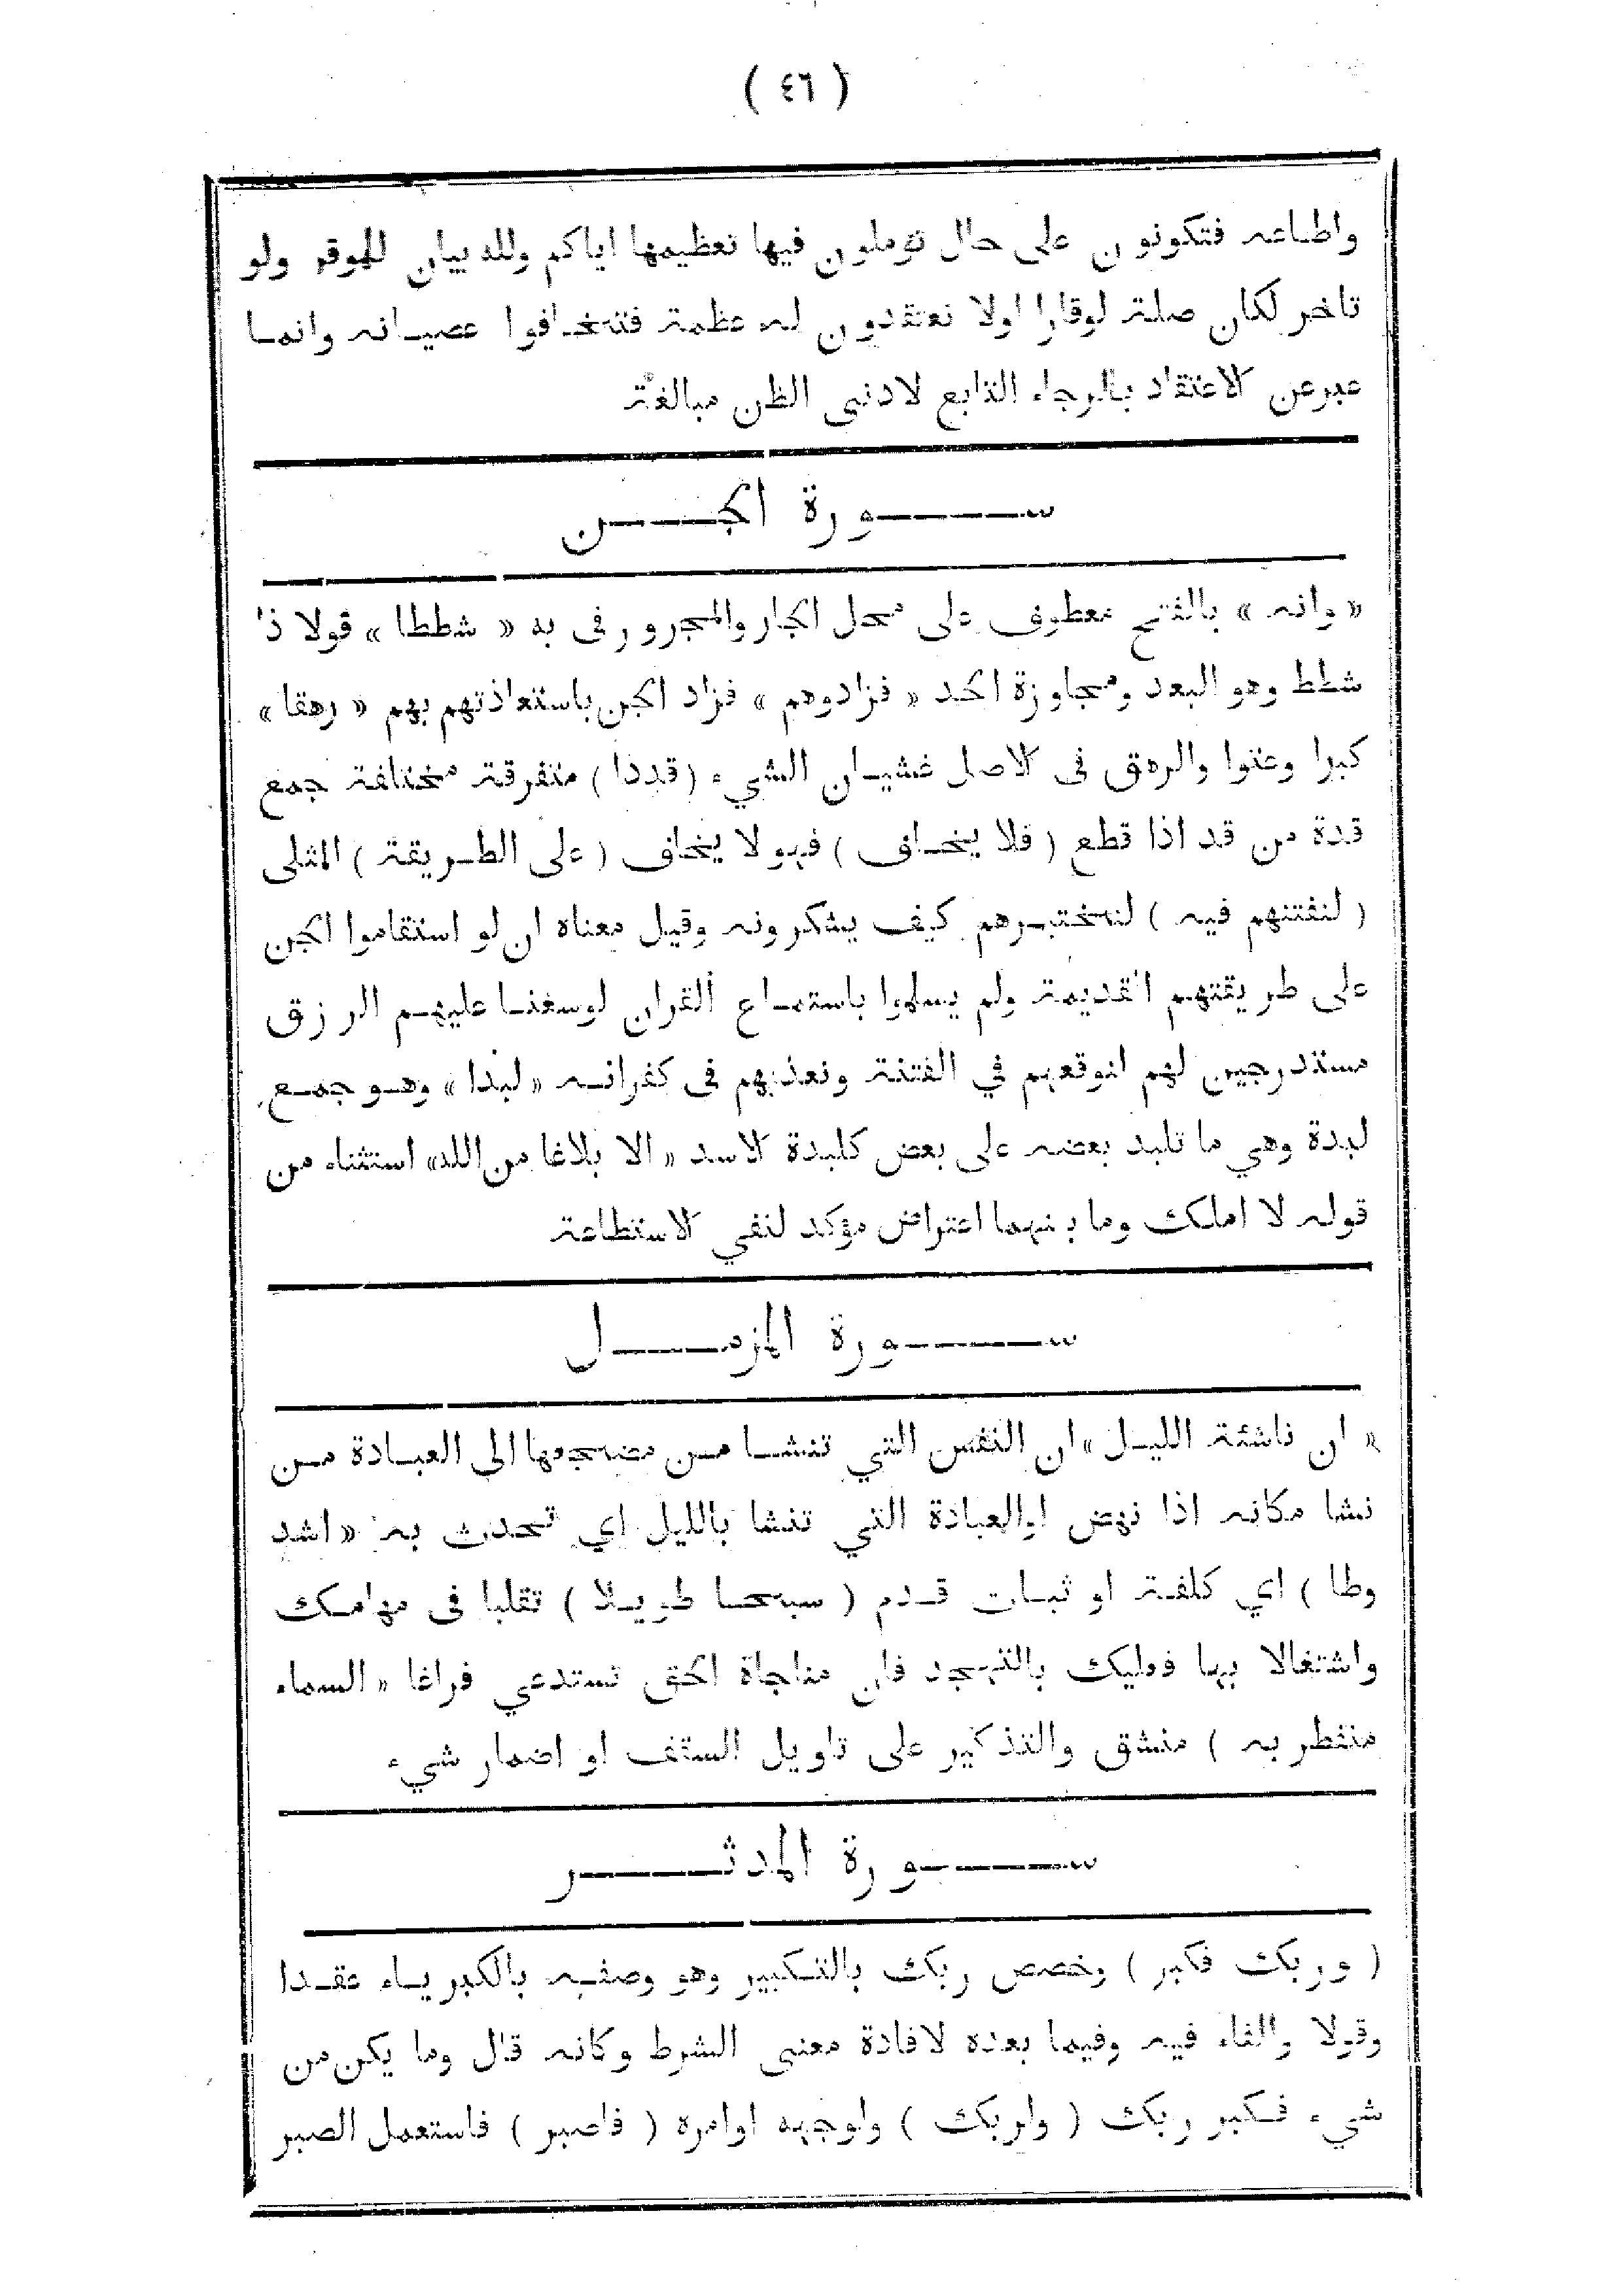 ( ٤٦ )
واطاعه فتكونون على حال تؤملون فيها تعظيمها اياكم ولله بيان للموقر ولو
تاخر لكان صلة لوقارا اولا تعتقدون له عظمة فتخافوا عصيانه وانما
عبر عن الاعتقاد بالرجاء التابع لادنى الظن مبالغة
سورة الجن
« وانه » بالفتح معطوف على محل الجار والمجرور فى به « شططا » قولا ذا
شطط وهو البعد ومجاوزة الحد « فزادوهم » فزاد الجن باستعاذتهم بهم « رهقا »
كبرا وعتوا والرهق فى الاصل غشيان الشيء ( قددا ) متفرقة مختلفة جمع
قدة من قد اذا قطع ( فلا يخاف ) فهو لا يخاف ( على الطريقة ) المثلى
( لنفتنهم فيه ) لنختبرهم كيف يشكرونه وقيل معناه ان لو استقاموا الجن
على طريقتهم القديمة ولم يسلموا باستماع القران لوسعنا عليهم الرزق
مستدرجين لهم لنوقعهم في الفتنة ونعذبهم فى كفرانه « لبدا » وهو جمع
لبدة وهي ما تلبد بعضه على بعض كلبدة الاسد « الا بلاغا من الله» استثناء من
قوله لا املك وما بينهما اعتراض مؤكد لنفي الاستطاعة
سورة المزمل
« ان ناشئة الليل » ان النفس التي تنشا من مضجعها الى العبادة من
نشا مكانه اذا نهض او العبادة التي تنشا بالليل اي تحدث به « اشد
وطا ) اي كلفة او ثبات قدم ( سبحا طويلا ) تقلبا فى مهامك
واشتغالا بها فعليك بالتهجد فان مناجاة الحق تستدعي فراغا « السماء
منفطر به ) منشق والتذكير على تاويل السقف او اضمار شيء
سورة المدثر
( وربك فكبر ) وخصص ربك بالتكبير وهو وصفه بالكبرياء عقدا
وقولا والفاء فيه وفيما بعده لافادة معنى الشرط وكانه قال وما يكن من
شيء فكبر ربك ( ولربك ) ولوجهه اوامره ( فاصبر ) فاستعمل الصبر